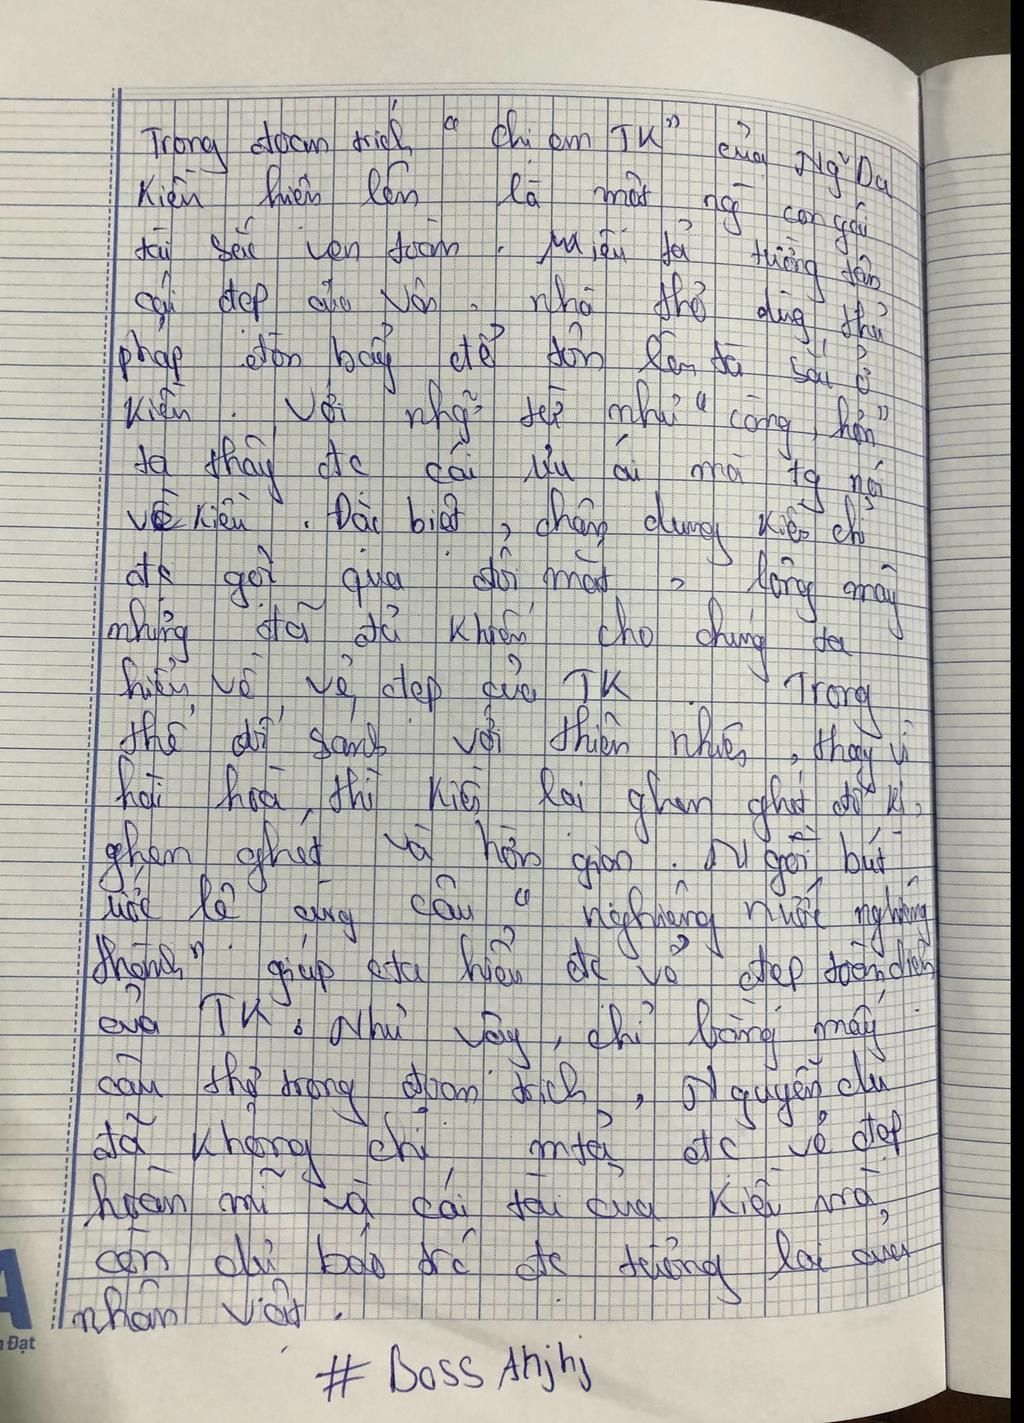 Trong đoạn trích " Chị em TK" của Ng~ Du
Kiều hiện lên là một ng` con gái
tài sắc vẹn toàn. Miêu tả tường tận
cái đẹp của Vân, nhà thơ dùng thủ
pháp đòn bẩy để tôn lên tài sắc ở
Kiều. Với nhg~ từ như " càng, hơn"
ta thấy đc cái ưu ái mà tg nói
về Kiều. Đặc biệt, chân dung Kiều chỉ
đc gợi qua đôi mắt, lông mày
nhưng đã đủ khiến cho chúng ta
hiểu về vẻ đẹp của TK Trong
thế đối sánh với thiên nhiên, thay vì
hài hòa thì Kiều lại ghen ghét đố kị,
ghen ghét và hờn giận. Ngòi bút
ước lệ cùng câu " nghiêng nước nghiêng
thành" giúp ta hiểu đc vẻ đẹp toàn diện
của TK. Như vậy, chỉ bằng mấy
câu thơ trong đoạn trích, Nguyễn du
đã không chỉ mtả đc vẻ đẹp
hoàn mĩ và cái tài của Kiều mà
còn dự báo trc đc tương lai của
nhân vật.
# Boss Ahjhj
Đạt